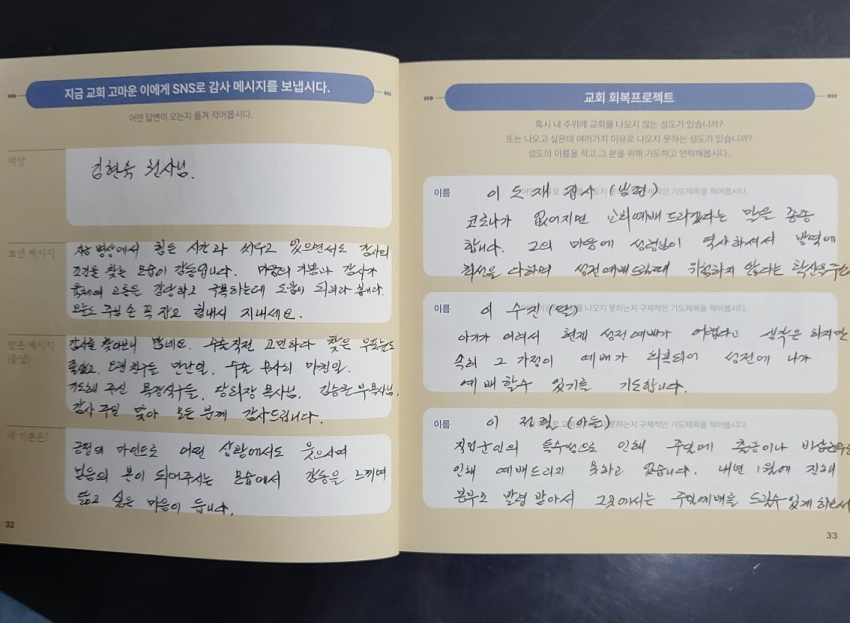 지금 교회 고마운 이에게 SNS로 감사 메시지를 보냅시다.
어떤 답변이 오는지 옮겨 적어봅시다.
대상
김현숙 권사님.
보낸 메시지
병상에서 힘든 시간과 싸우고 있으면서도 감사의
조건을 찾는 모습이 감동입니다. 마음의 기쁨과 감사가
육체의 고통을 감당하고 극복하는데 도움이 되리라 봅니다.
오늘도 주님 손 꼭 잡고 힘내서 지내세요.
받은 메시지
(응답)
감사를 찾아보니 많네요. 수술직전 고민하다 찾은
좋았고, 친구들 만난일. 수술 의사의 마지막
기도해 주신 목장식구들, 담임목사님, 부목사님.
감사 주일 맞아 모든 분께 감사드립니다.
내 기분은?
긍정의 마인드로 어떤 상황에서도 웃으시며
믿음의 본이 되어주시는 모습에서 감동을 느끼며
닮고 싶은 마음이 듭니다.
32
교회 회복프로젝트
혹시 내 주위에 교회를 나오지 않는 성도가 있습니까?
또는 나오고 싶은데 여러가지 이유로 나오지 못하는 성도가 있습니까?
성도의 이름을 적고 그 분을 위해 기도하고 연락해봅시다.
이름
이 도재 집사 (남편)
코로나가 없어지면 예배 드리겠다는 말을 종종
합니다. 그의 마음에 성령님이 역사하셔서 방역에
최선을 다하며 성전예배 드릴때 위험하지 않다는 확신을
이름
이 수진 (딸)
아기가 어려서 현재 성전예배가 어렵다고 생각은 하지만
속히 그 가정이 예배가 회복되어 성전에 나가
예배 할수 있기를 기도합니다.
이름
이 (아들)
직업군인의 특수성으로 인해 주일에 출근이나
인해 예배드리지 못하고 있습니다. 내년 1월에 진해
본부로 발령 받아서 그곳에서는 주일예배를 드릴수 있게
33